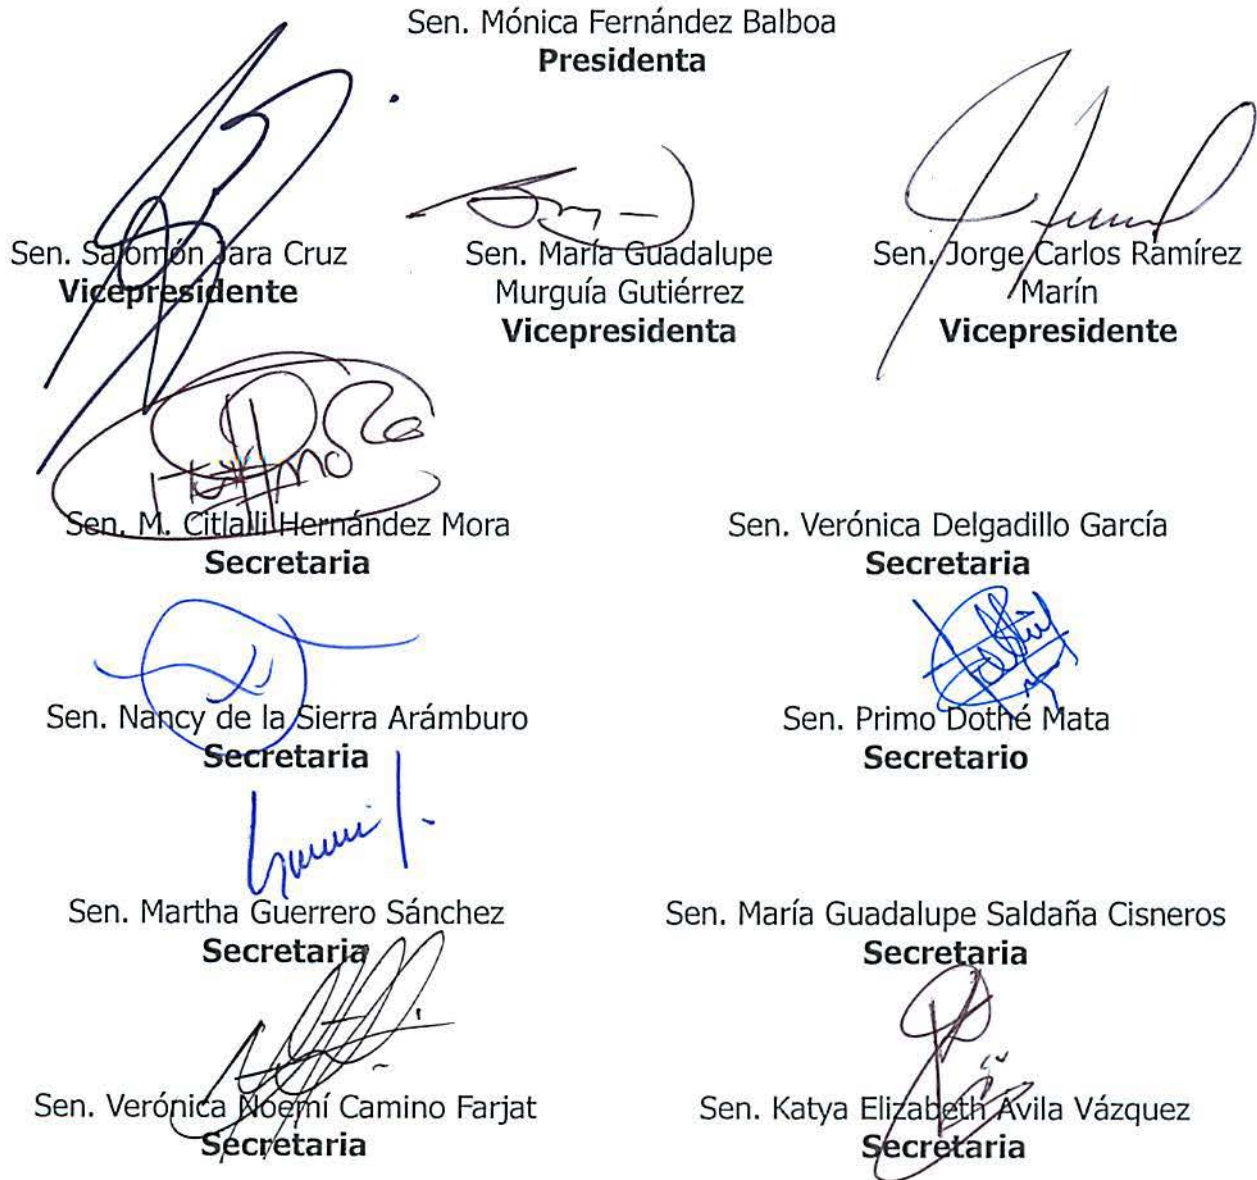 Sen. Mónica Fernández Balboa
Presidenta
Sen. Salomón Jara Cruz
Vicepresidente
Sen. María Guadalupe
Murguía Gutiérrez
Vicepresidenta
Sen. Jorge Carlos Ramírez
Marín
Vicepresidente
Sen. M. Citlalli Hernández Mora
Secretaria
Sen. Verónica Delgadillo García
Secretaria
Sen. Nancy de la Sierra Arámburo
Secretaria
Sen. Primo Dothé Mata
Secretario
Sen. Martha Guerrero Sánchez
Secretaria
Sen. María Guadalupe Saldaña Cisneros
Secretaria
Sen. Verónica Noemí Camino Farjat
Secretaria
Sen. Katya Elizabeth Avila Vázquez
Secretaria